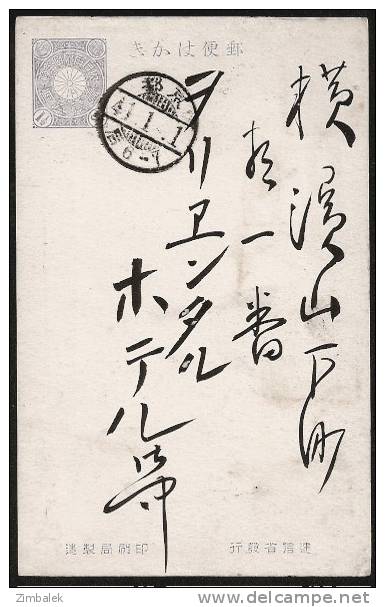 郵便はかき
1½
京都
41.1.1
6-7
横濱山下町
拾一番
ヲリヱンタル
ホテル御中
遞信省發行
印刷局製造
Zimbalek
delcampe.net